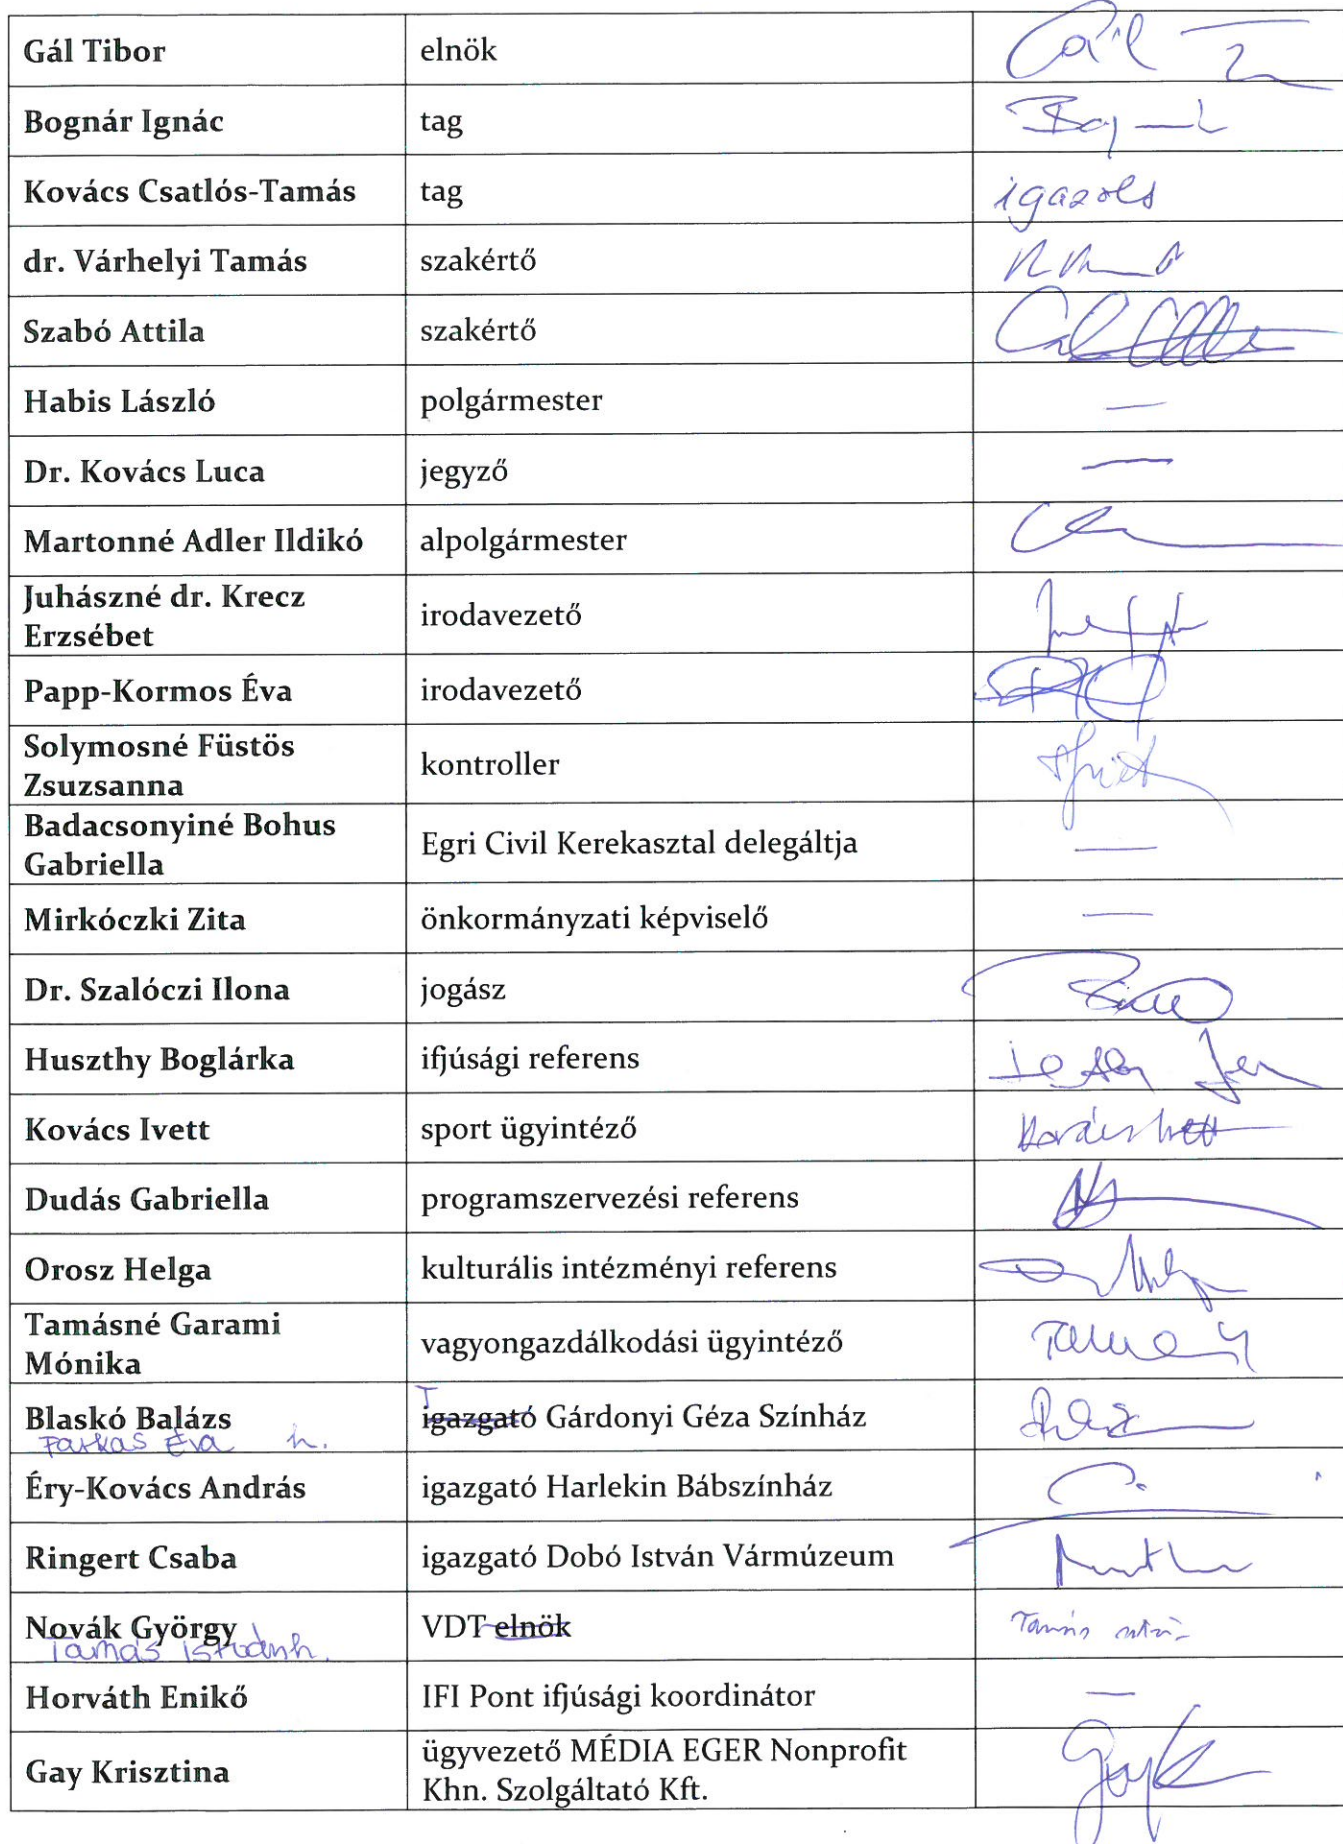 Gál Tibor elnök Gál T
Bognár Ignác tag
Kovács Csatlós-Tamás tag igazols
dr. Várhelyi Tamás szakértő
Szabó Attila szakértő
Habis László polgármester —
Dr. Kovács Luca jegyző —
Martonné Adler Ildikó alpolgármester
Juhászné dr. Krecz
Erzsébet
irodavezető
Papp-Kormos Éva irodavezető
Solymosné Füstös
Zsuzsanna
kontroller
Badacsonyiné Bohus
Gabriella
Egri Civil Kerekasztal delegáltja —
Mirkóczki Zita önkormányzati képviselő —
Dr. Szalóczi Ilona jogász
Huszthy Boglárka ifjúsági referens
Kovács Ivett sport ügyintéző Kovács Ivett
Dudás Gabriella programszervezési referens
Orosz Helga kulturális intézményi referens
Tamásné Garami
Mónika
vagyongazdálkodási ügyintéző
Blaskó Balázs igazgató Gárdonyi Géza Színház
Farkas Éva h.
Éry-Kovács András igazgató Harlekin Bábszínház
Ringert Csaba igazgató Dobó István Vármúzeum
Novák György VDT elnök Tamás
Tamás István h.
Horváth Enikő IFI Pont ifjúsági koordinátor —
Gay Krisztina
ügyvezető MÉDIA EGER Nonprofit
Khn. Szolgáltató Kft.